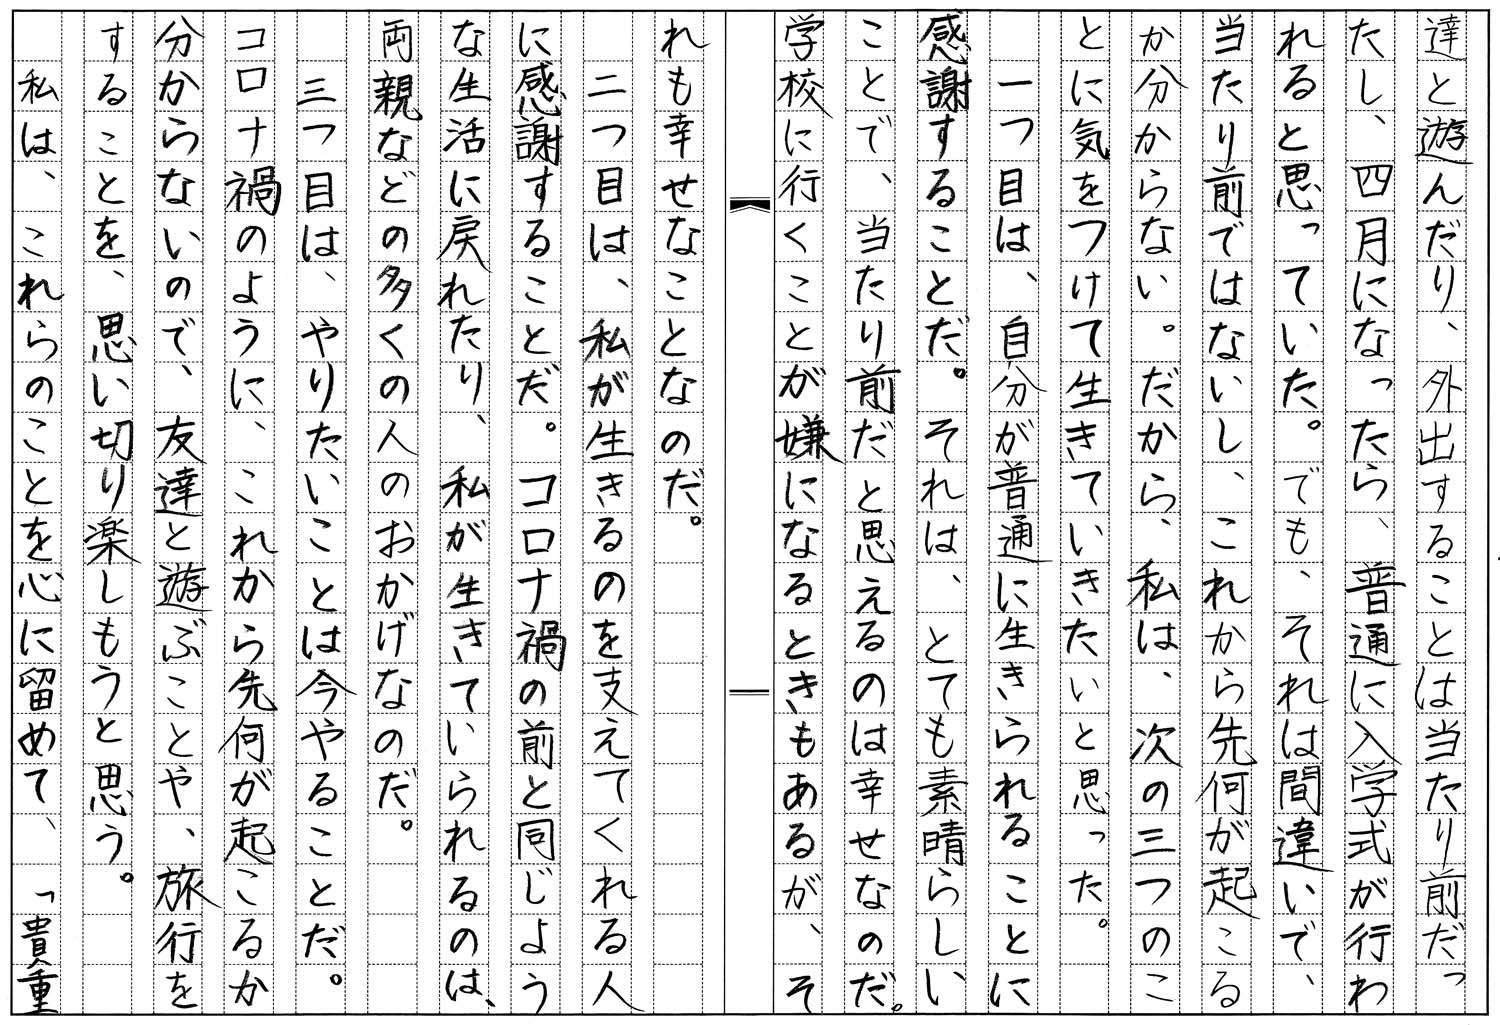 達と遊んだり、外出することは当たり前だっ
たし、四月になったら、普通に入学式が行わ
れると思っていた。でも、それは間違いで、
当たり前ではないし、これから先何が起こる
か分からない。だから、私は、次の三つのこ
とに気をつけて生きていきたいと思った。
一つ目は、自分が普通に生きられることに
感謝することだ。それは、とても素晴らしい
ことで、当たり前だと思えるのは幸せなのだ。
学校に行くことが嫌になるときもあるが、そ
れも幸せなことなのだ。
二つ目は、私が生きるのを支えてくれる人
に感謝することだ。コロナ禍の前と同じよう
な生活に戻れたり、私が生きていられるのは、
両親などの多くの人のおかげなのだ。
三つ目は、やりたいことは今やることだ。
コロナ禍のように、これから先何が起こるか
分からないので、友達と遊ぶことや、旅行を
することを、思い切り楽しもうと思う。
私は、これらのことを心に留めて、「貴重